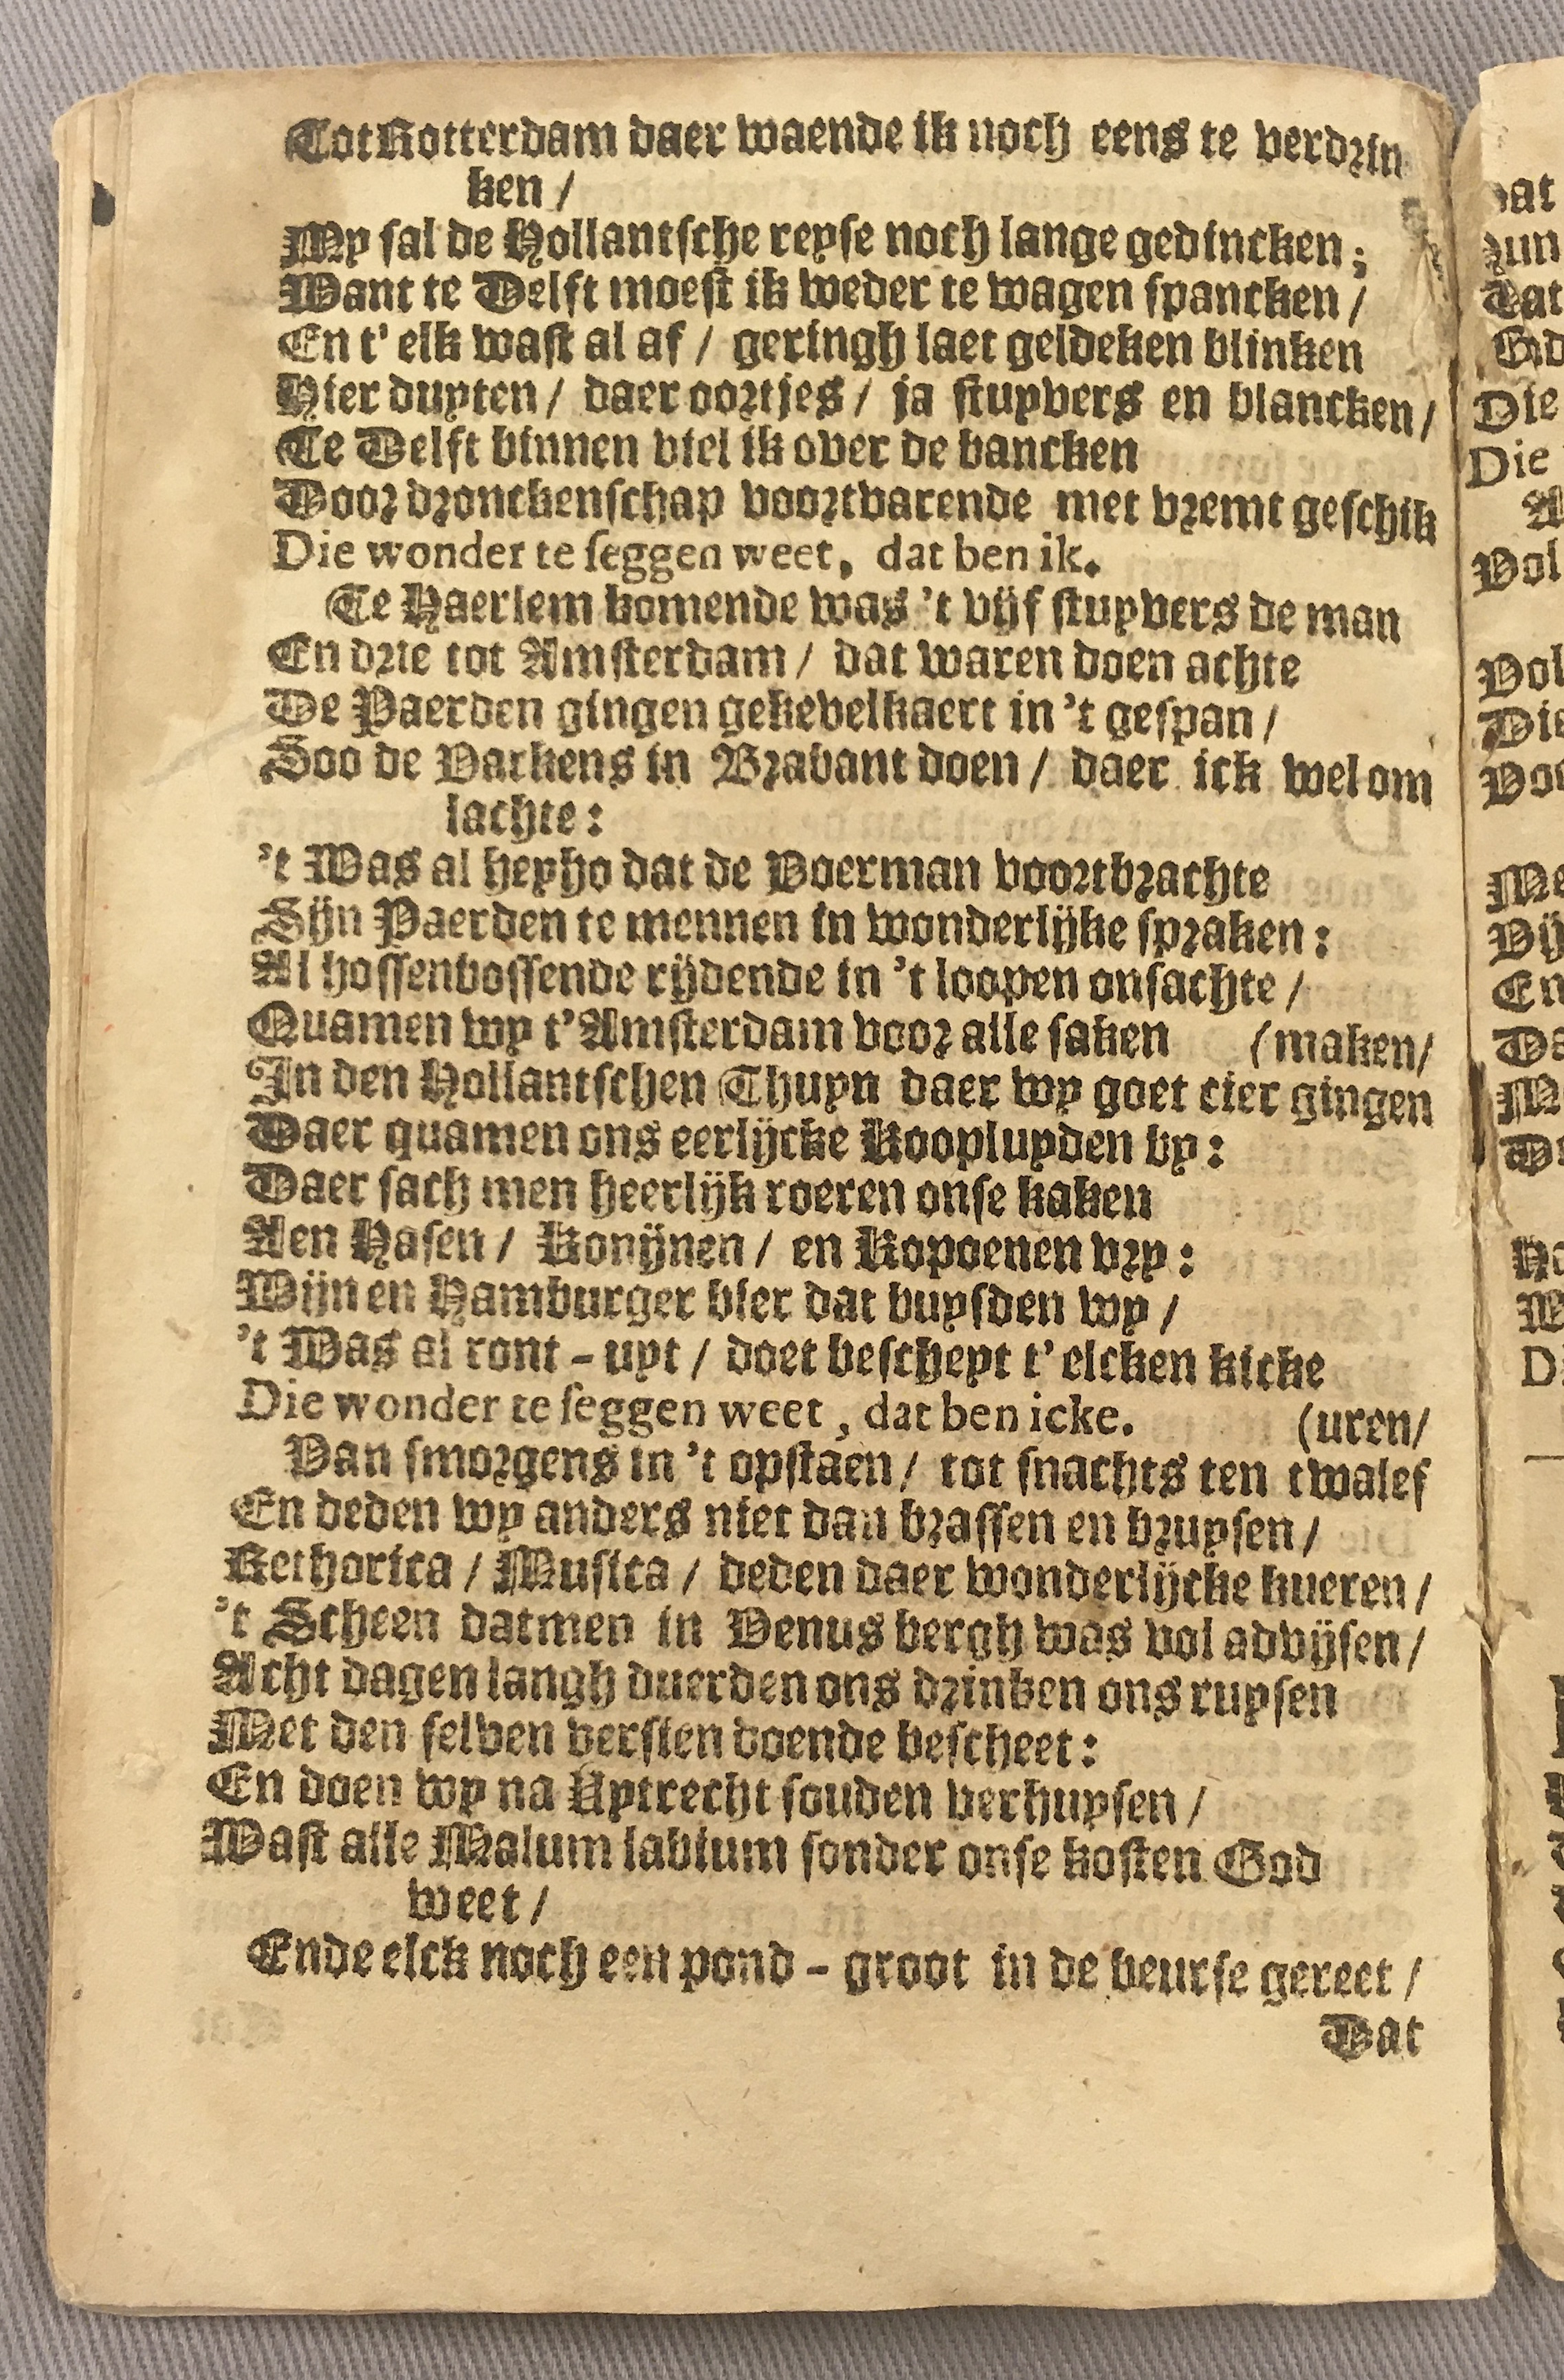 Tot Rotterdam daer waende ik noch eens te verdrin
ken /
My sal de Hollantsche reyse noch lange gedincken;
Want te Delft moest ik weder te wagen spancken /
En t'elk wast al af / geringh laet geldeken blinken
Hier duyten / daer oortjes / ja stuyvers en blancken /
Te Delft binnen viel ik over de bancken
Door dronckenschap voortvarende met vremt geschik
Die wonder te seggen weet, dat ben ik.
Te Haerlem komende was 't vijf stuyvers de man
En drie tot Amsterdam / dat waren doen achte
De Paerden gingen gekevelkaert in 't gespan /
Soo de Varkens in Brabant doen / daer ick wel om
lachte:
't Was al heyho dat de Voerman voortbrachte
Sijn Paerden te mennen in wonderlijke spraken:
Al hossenbossende rijdende in 't loopen onsachte /
Quamen wy t'Amsterdam voor alle saken (maken/
In den Hollantschen Thuyn daer wy goet cier gingen
Daer quamen ons eerlijcke Kooplupden by:
Daer sach men heerlijk roeren onse kaken
Aen Hasen / Konijnen / en Kopoenen vry:
Wijn en Hamburger bier dat buysden wy /
't Was al ront - uyt / doet bescheyt t'elcken kicke
Die wonder te seggen weet, dat ben icke. (uren/
Van smorgens in 't opstaen / tot snachts ten twalef
En deden wy anders niet dan brassen en bruysen /
Rethorica / Musica / deden daer wonderlijcke kueren /
't Scheen datmen in Venus bergh was vol advijsen /
Acht dagen langh duerden ons drinken ons ruysen
Met den selven versien doende bescheet:
En doen wy na Uytrecht souden verhuysen /
Wast alle Malum labium sonder onse kosten God
weet /
Ende elck noch een pond - groot in de beurse gereet /
Dat